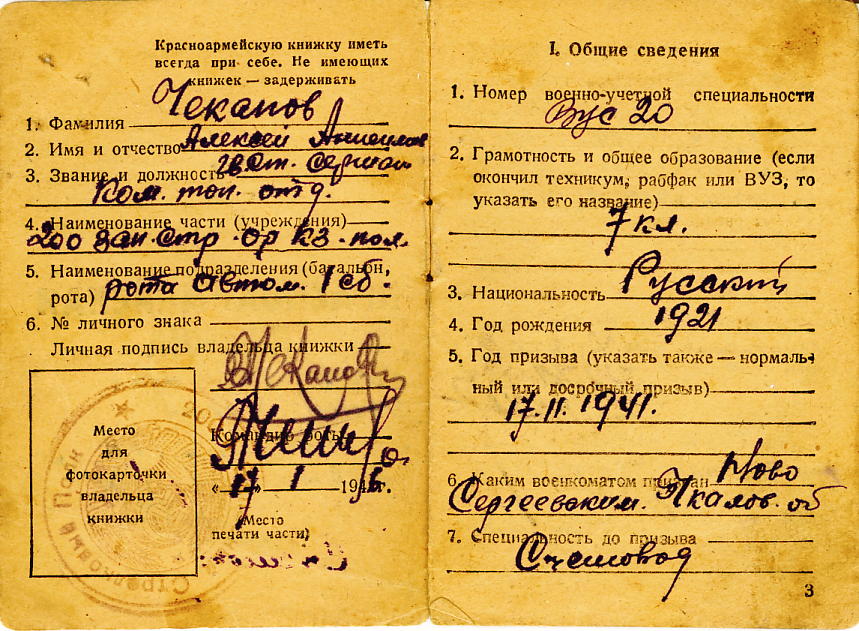 Красноармейскую книжку иметь
всегда при себе. Не имеющих
книжек — задерживать
Чекапов
1. Фамилия
2. Имя и отчество Алексей
3. Звание и должность гв. Ст. Сержан
Ком. отд.
4. Наименование части (учреждения)
200 зап. стр. пол.
5. Наименование подразделения (батальон,
рота) рота автом. 1 сб.
6. № личного знака
Личная подпись владельца книжки
Командир роты
Место
для
фотокарточки
владельца
книжки
„17" 1 1946 г.
(Место
печати части)
Стрелковый Полк
I. Общие сведения
1. Номер военно-учетной специальности
Вус 20
2. Грамотность и общее образование (если
окончил техникум, рабфак или ВУЗ, то
указать его название)
7 кл.
3. Национальность Русский
4. Год рождения 1921
5. Год призыва (указать также — нормаль-
ный или досрочный призыв)
17.11.1941.
6. Каким военкоматом призван Ново
Сергеевским. Чкалов. об
7. Специальность до призыва
Счетовод
3